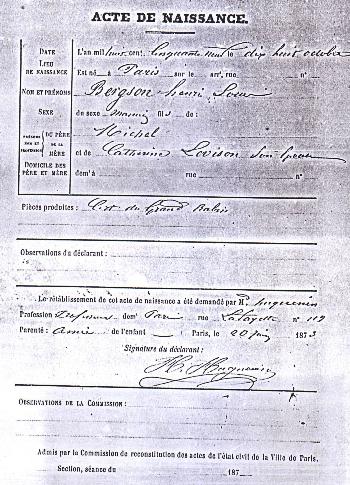 ACTE DE NAISSANCE.
DATE L'an mil huit cent cinquante neuf le dix huit octobre
LIEU DE NAISSANCE Est né à Paris sur le arrt, rue n°
NOM ET PRÉNOMS Bergson henri Louis
SEXE du sexe masculin fils de :
PRÉNOMS NOM ET PROFESSION DU PÈRE Michel
DE LA MÈRE et de Catherine Levison son épouse
DOMICILE DES PÈRE ET MÈRE demt à rue n°
Pièces produites : Cert. du Grand Rabin
Observations du déclarant :
Le rétablissement de cet acte de naissance a été demandé par M. huguenin
Profession Professeur domt Paris rue Lafayette n° 119
Parenté : Ami de l'enfant Paris, le 20 juin 1873
Signature du déclarant :
H. Huguenin
OBSERVATIONS DE LA COMMISSION :
Admis par la Commission de reconstitution des actes de l'état civil de la Ville de Paris.
Section, séance du 187